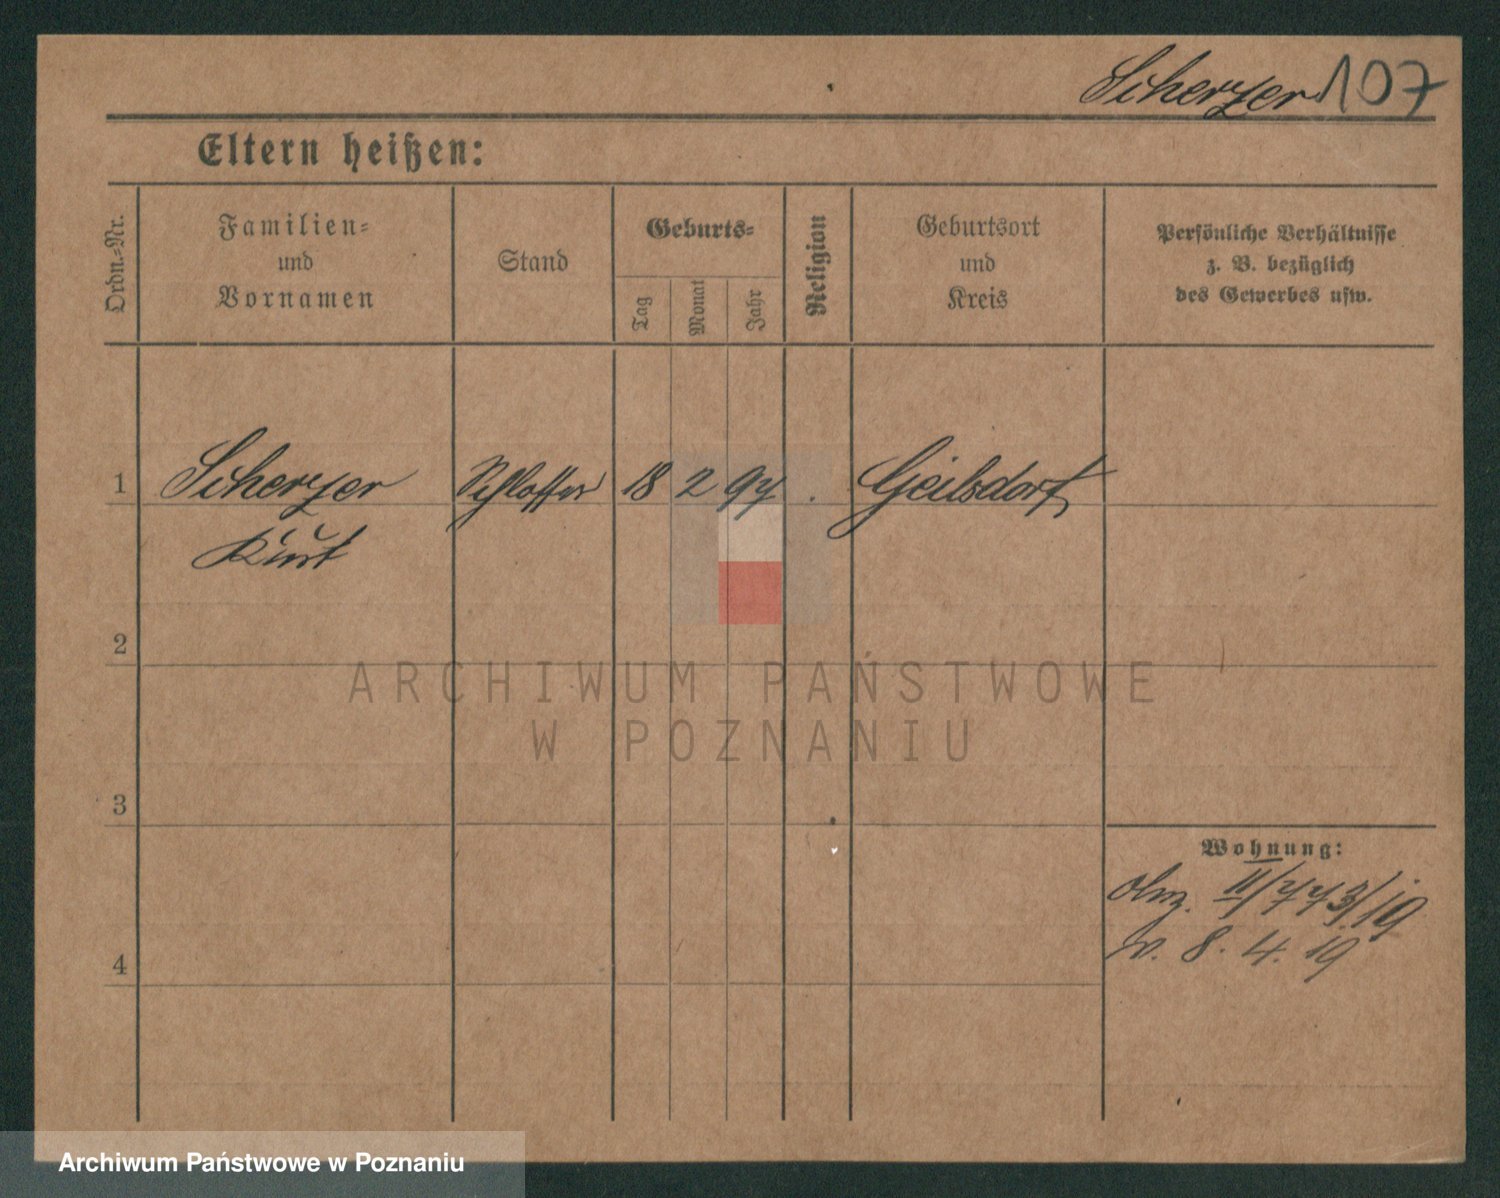 Scherzer 107
Eltern heißen:
Ordn.-Nr.
Familien-
und
Vornamen
Stand
Geburts-
Tag
Monat
Jahr
Religion
Geburtsort
und
Kreis
Persönliche Verhältnisse
z. B. bezüglich
des Gewerbes usw.
1 Scherzer Schlosser 18 2 97 . Geilsdorf
Kurt
2
ARCHIWUM PAŃSTWOWE
W POZNANIU
3
Wohnung:
II/773/19
v. 8. 4. 19
4
Archiwum Państwowe w Poznaniu